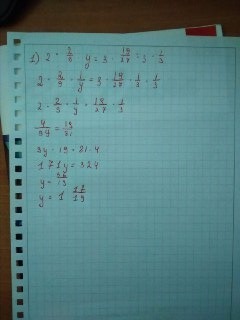 1) 2 : 2/9 y = 3 · 19/27 : 3 · 1/3
2 · 2/9 · 1/y = 3 · 19/27 · 1/3 · 1/3
2 · 2/9 · 1/y = 19/27 · 1/3
4/9y = 19/81
9y · 19 = 81 · 4
171y = 324
y = 36/19
y = 1 17/19